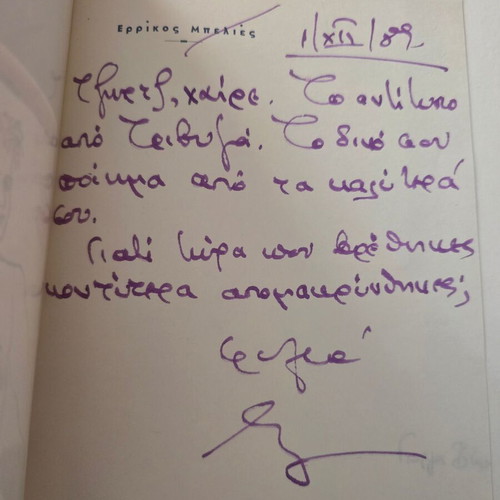 Ερρίκος Μπελιές
1/XII/89
Τζωρτζ, χαίρε. Το αντίτυπο
από Τριβιζά. Το δικό σου
ποίημα από τα καλύτερά
σου.
Γιατί τώρα που βρέθηκες
κοντύτερα απομακρύνθηκες;
φιλιά